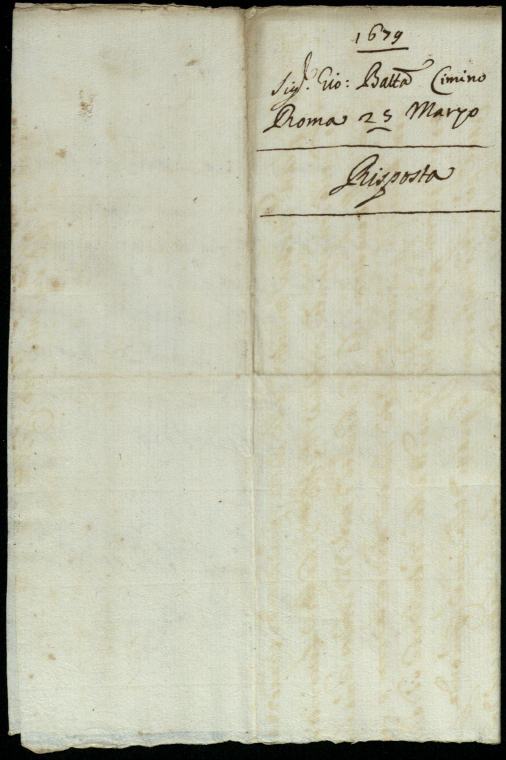 1679
Sig.r Gio: Batta Cimino
Roma 25 Marzo
Risposta